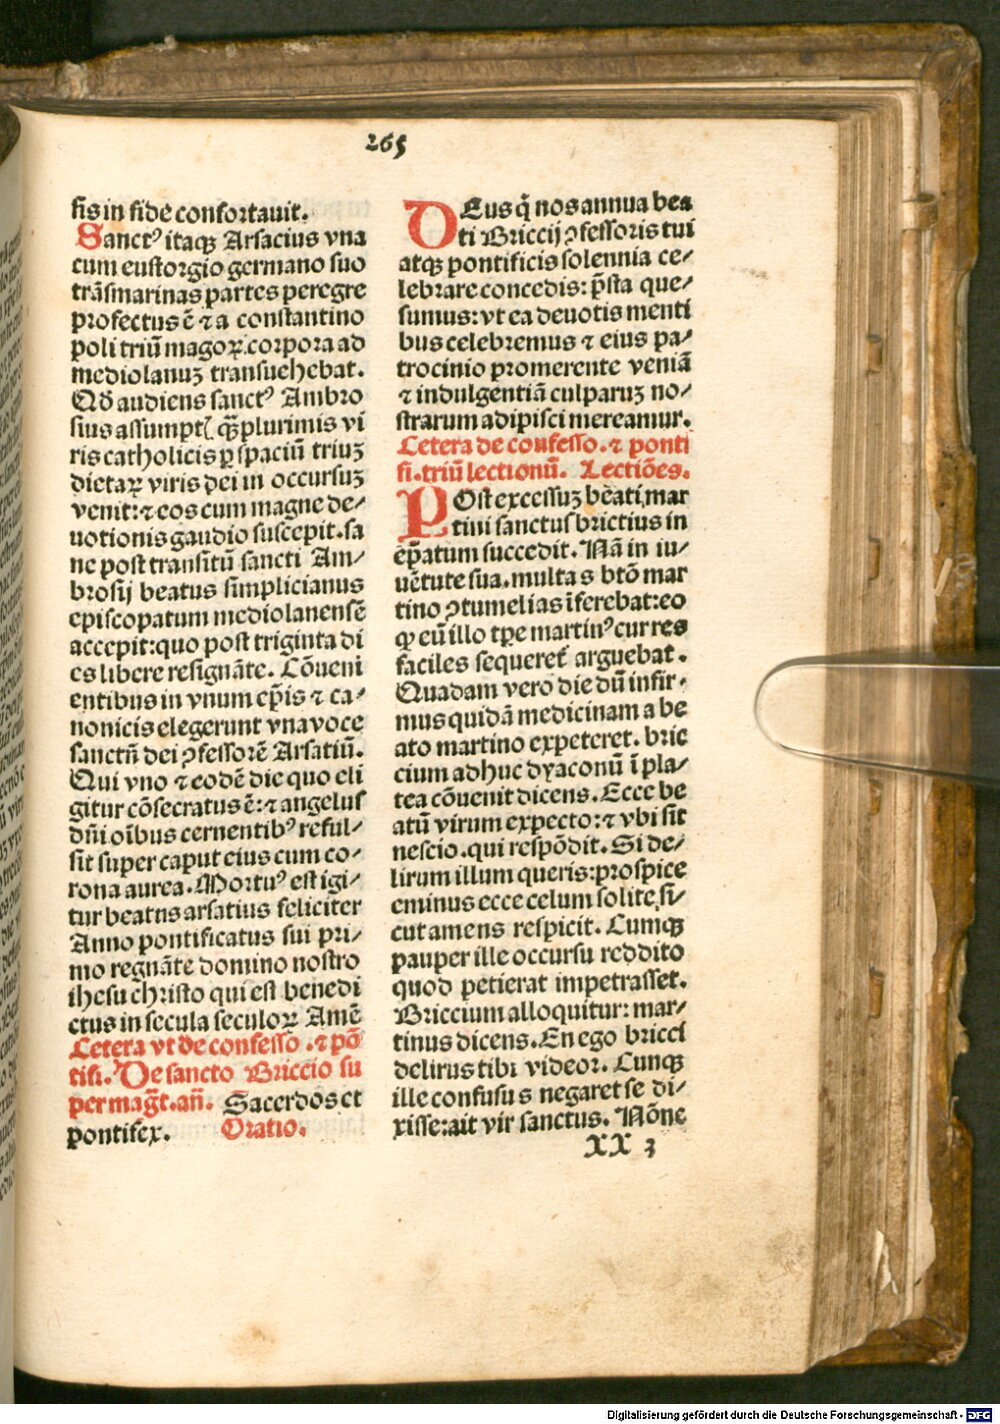 265
sis in fide confortauit.
Sanctꝰ itaqꝫ Arsacius vna
cum eustorgio germano suo
trãsmarinas partes peregre
profectus ẽ ⁊ a constantino
poli triũ magoꝝ corpora ad
mediolanuꝫ transuehebat.
Qđ audiens sanctꝰ Ambro
sius assumptꝭ qꝫplurimis vi
ris catholicis ꝑ spaciũ triuꝫ
dietaꝝ viris dei in occursuꝫ
venit:⁊ eos cum magne de⸗
uotionis gaudio suscepit.sa
ne post transitũ sancti Am⸗
brosij beatus simplicianus
episcopatum mediolanensẽ
accepit:quo post triginta di
es libere resignãte. Cõueni
entibus in vnum ep̃is ⁊ ca⸗
nonicis elegerunt vna voce
sanctũ dei ꝯfessorẽ Arsatiũ.
Qui vno ⁊ eodẽ die quo eli
gitur cõsecratus ẽ:⁊ angelus
dñi oĩbus cernentibꝰ reful⸗
sit super caput eius cum co⸗
rona aurea. Mortuꝰ est igi⸗
tur beatus arsatius feliciter
Anno pontificatus sui pri⸗
mo regnãte domino nostro
ihesu ch̃risto qui est benedi
ctus in secula seculoꝝ Amẽ
Cetera vt de confesso .⁊ põ
tifi. De sancto Briccio su
per mag̃t.añ. Sacerdos et
pontifex. Oratio.
DEus q̃ nos annua bea
ti Briccij ꝯfessoris tui
atqꝫ pontificis solennia ce⸗
lebrare concedis: p̃sta que⸗
sumus: vt ea deuotis menti
bus celebremus ⁊ eius pa⸗
trocinio promerente veniã
⁊ indulgentiã culparuꝫ no⸗
strarum adipisci mereamur.
Cetera de confesso.⁊ ponti
fi.triũ lectionũ. Lectiões.
POst excessuꝫ beati mar
tini sanctus brictius in
ep̃atum succedit. Nã in iu⸗
uẽtute sua.multas btõ mar
tino ꝯtumelias ĩferebat:eo
qꝙ eũ illo tp̃e martinꝰ cur res
faciles sequeret̃ arguebat.
Quadam vero die dũ infir⸗
mus quidã medicinam a be
ato martino expeteret. bric
cium adhuc dyaconũ ĩ pla⸗
tea cõuenit dicens. Ecce be
atũ virum expecto:⁊ vbi sit
nescio.qui respõdit. Si de⸗
lirum illum queris:prospice
eminus ecce celum solite si⸗
cut amens respicit. Cumqꝫ
pauper ille occursu reddito
quod petierat impetrasset.
Briccium alloquitur: mar⸗
tinus dicens. En ego bricci
delirus tibi videor. Cunqꝫ
ille confusus negaret se di⸗
xisse:ait vir sanctus. Nõne
XX 3
Digitalisierung gefördert durch die Deutsche Forschungsgemeinschaft - DFG